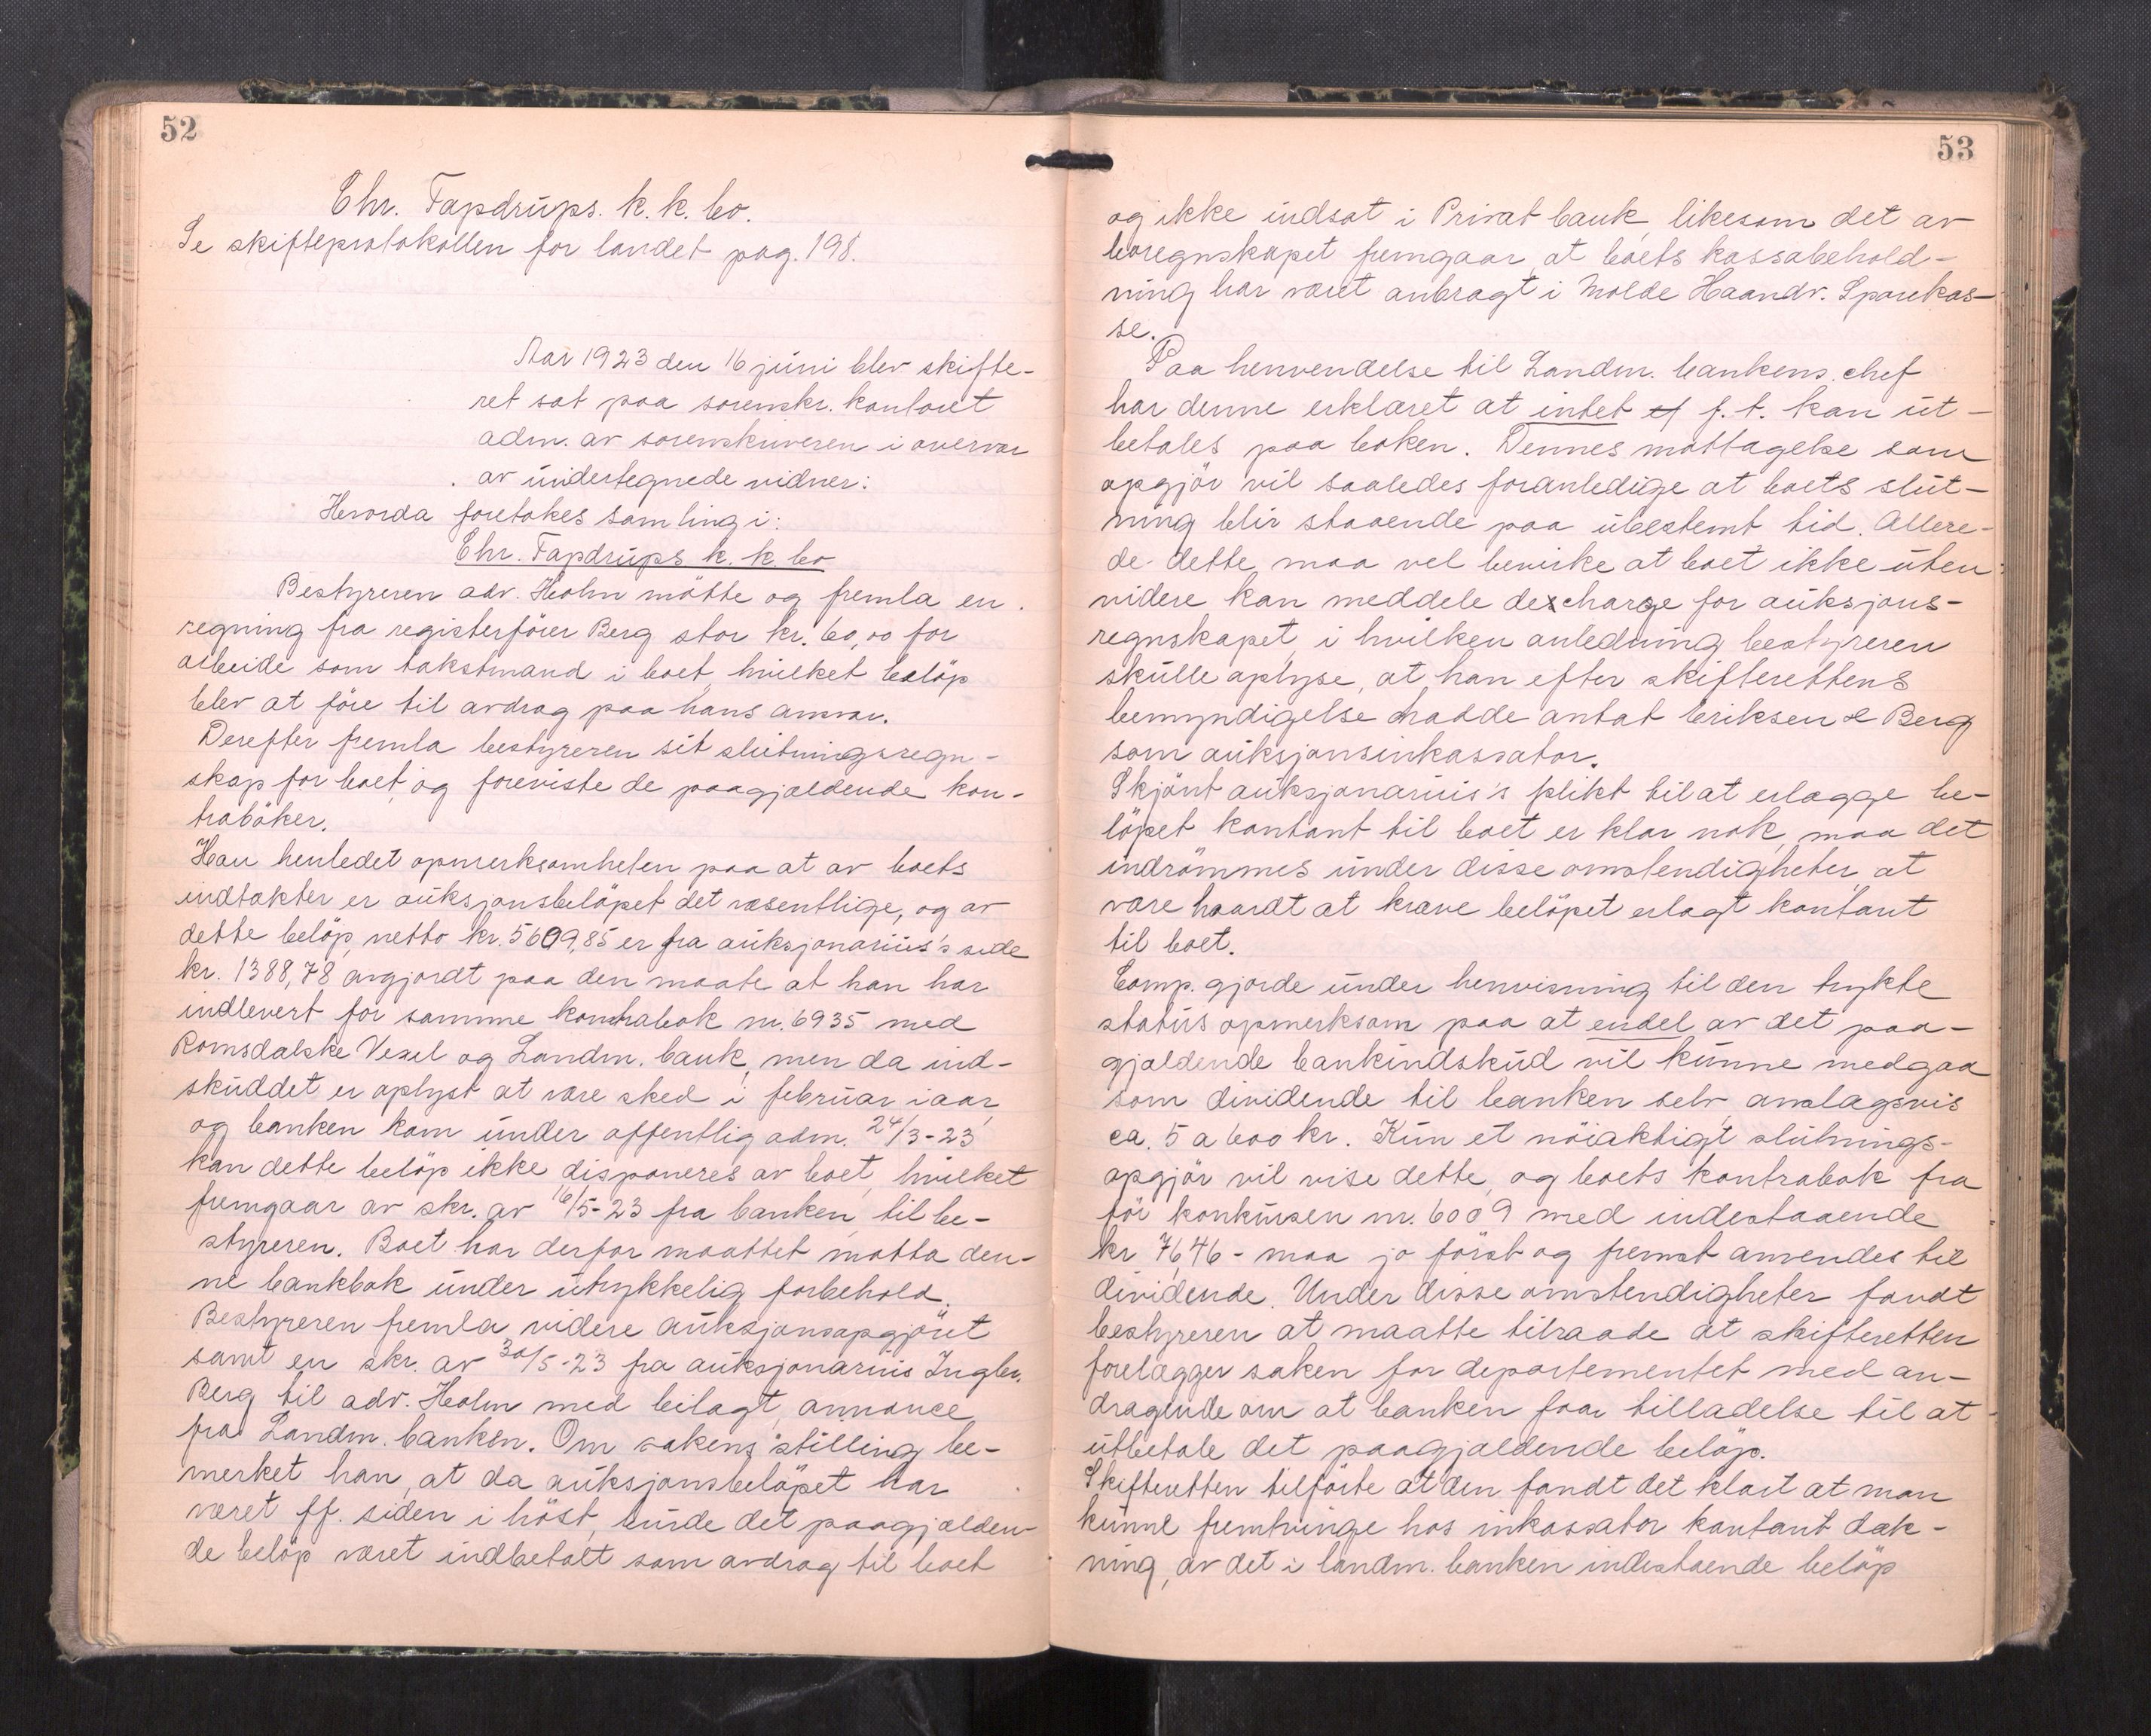 52
Chr. Tapdrups. k. k. bo.
Se skifteprotokollen for landet pag. 198.
Aar 1923 den 16 juni blev skifte-
ret sat paa sorenskr. kontoret
adm. av sorenskriveren i overvær
av undertegnede vidner:
Hvorda foretokes samling i:
Chr. Tapdrups k. k. bo
Bestyreren adv. Holm mötte og fremla en
regning fra registerförer Berg stor kr. 60,00 for
arbeide som takstmand i boet, hvilket belöp
blev at före til avdrag paa hans ansvar.
Derefter fremla bestyreren sit slutningsregn-
skap for boet, og foreviste de paagjældende kon-
traböker.
Han henledet opmerksomheten paa at av boets
indtækter er auksjonsbelöpet det væsentlige, og av
dette belöp, netto kr. 5609,85 er fra auksjonarius's side
kr. 1388,78 avgjordt paa den maate at han har
indlevert for samme kontrabok nr. 6935 med
Romsdalske Vexel og Landm. bank, men da ind-
skuddet er oplyst at være sked i februar iaar,
og banken kom under offentlig adm. 24/3-23
kan dette belöp ikke disponeres av boet, hvilket
fremgaar av skr. av 16/5-23 fra banken til be-
styreren. Boet har derfor maattet motta den-
ne bankbok under utrykkelig forbehold.
Bestyreren fremla videre auksjonsopgjöret
samt en skr. av 30/5-23 fra auksjonarius Ingbr.
Berg til adv. Holm med bilagt annonce
fra Landm. banken. Om sakens stilling be-
merket han, at da auksjonsbelöpet har
været ff. siden i höst, burde det paagjælden-
de belöp været indbetalt som avdrag til boet
53
og ikke indsat i Privat bank, likesom det av
boregnskapet fremgaar at boets kassabehold-
ning har været anbragt i Molde Haandv. Sparekas-
se.
Paa henvendelse til Landm. bankens chef
har denne erklæret at intet f. t. kan ut-
betales paa boken. Dennes mottagelse som
opgjör vil saaledes foranledige at boets slut-
ning blir staaende paa ubestemt tid. Allere-
de dette maa vel bevirke at boet ikke uten
videre kan meddele decharge for auksjons-
regnskapet, i hvilken anledning bestyreren
skulle oplyse, at han efter skifterettens
bemyndigelse hadde antat Eriksen & Berg
som auksjonsinkassator.
Skjönt auksjonarius's plikt til at erlægge be-
löpet kontant til boet er klar nok, maa det
indrömmes under disse omstendigheter, at
være haardt at kræve belöpet erlagt kontant
til boet.
Comp. gjorde under henvisning til den trykte
status opmerksom paa at endel av det paa-
gjældende bankindskud vil kunne medgaa
som dividende til banken selv, anslagsvis
ca. 5 a 600 kr. Kun et nöiaktigt slutnings-
opgjör vil vise dette, og boets kontrabok fra
för konkursen nr. 6009 med indestaaende
kr 76,46 - maa jo först og fremst anvendes til
dividende. Under disse omstendigheter fandt
bestyreren at maatte tilraade at skifteretten
forelægger saken for departementet med an-
dragende om at banken faar tilladelse til at
utbetale det paagjældende belöp.
Skifteretten tilförte at den fandt det klart at man
kunne fremtvinge hos inkassator kontant dæk-
ning, av det i landm. banken indestaende belöp